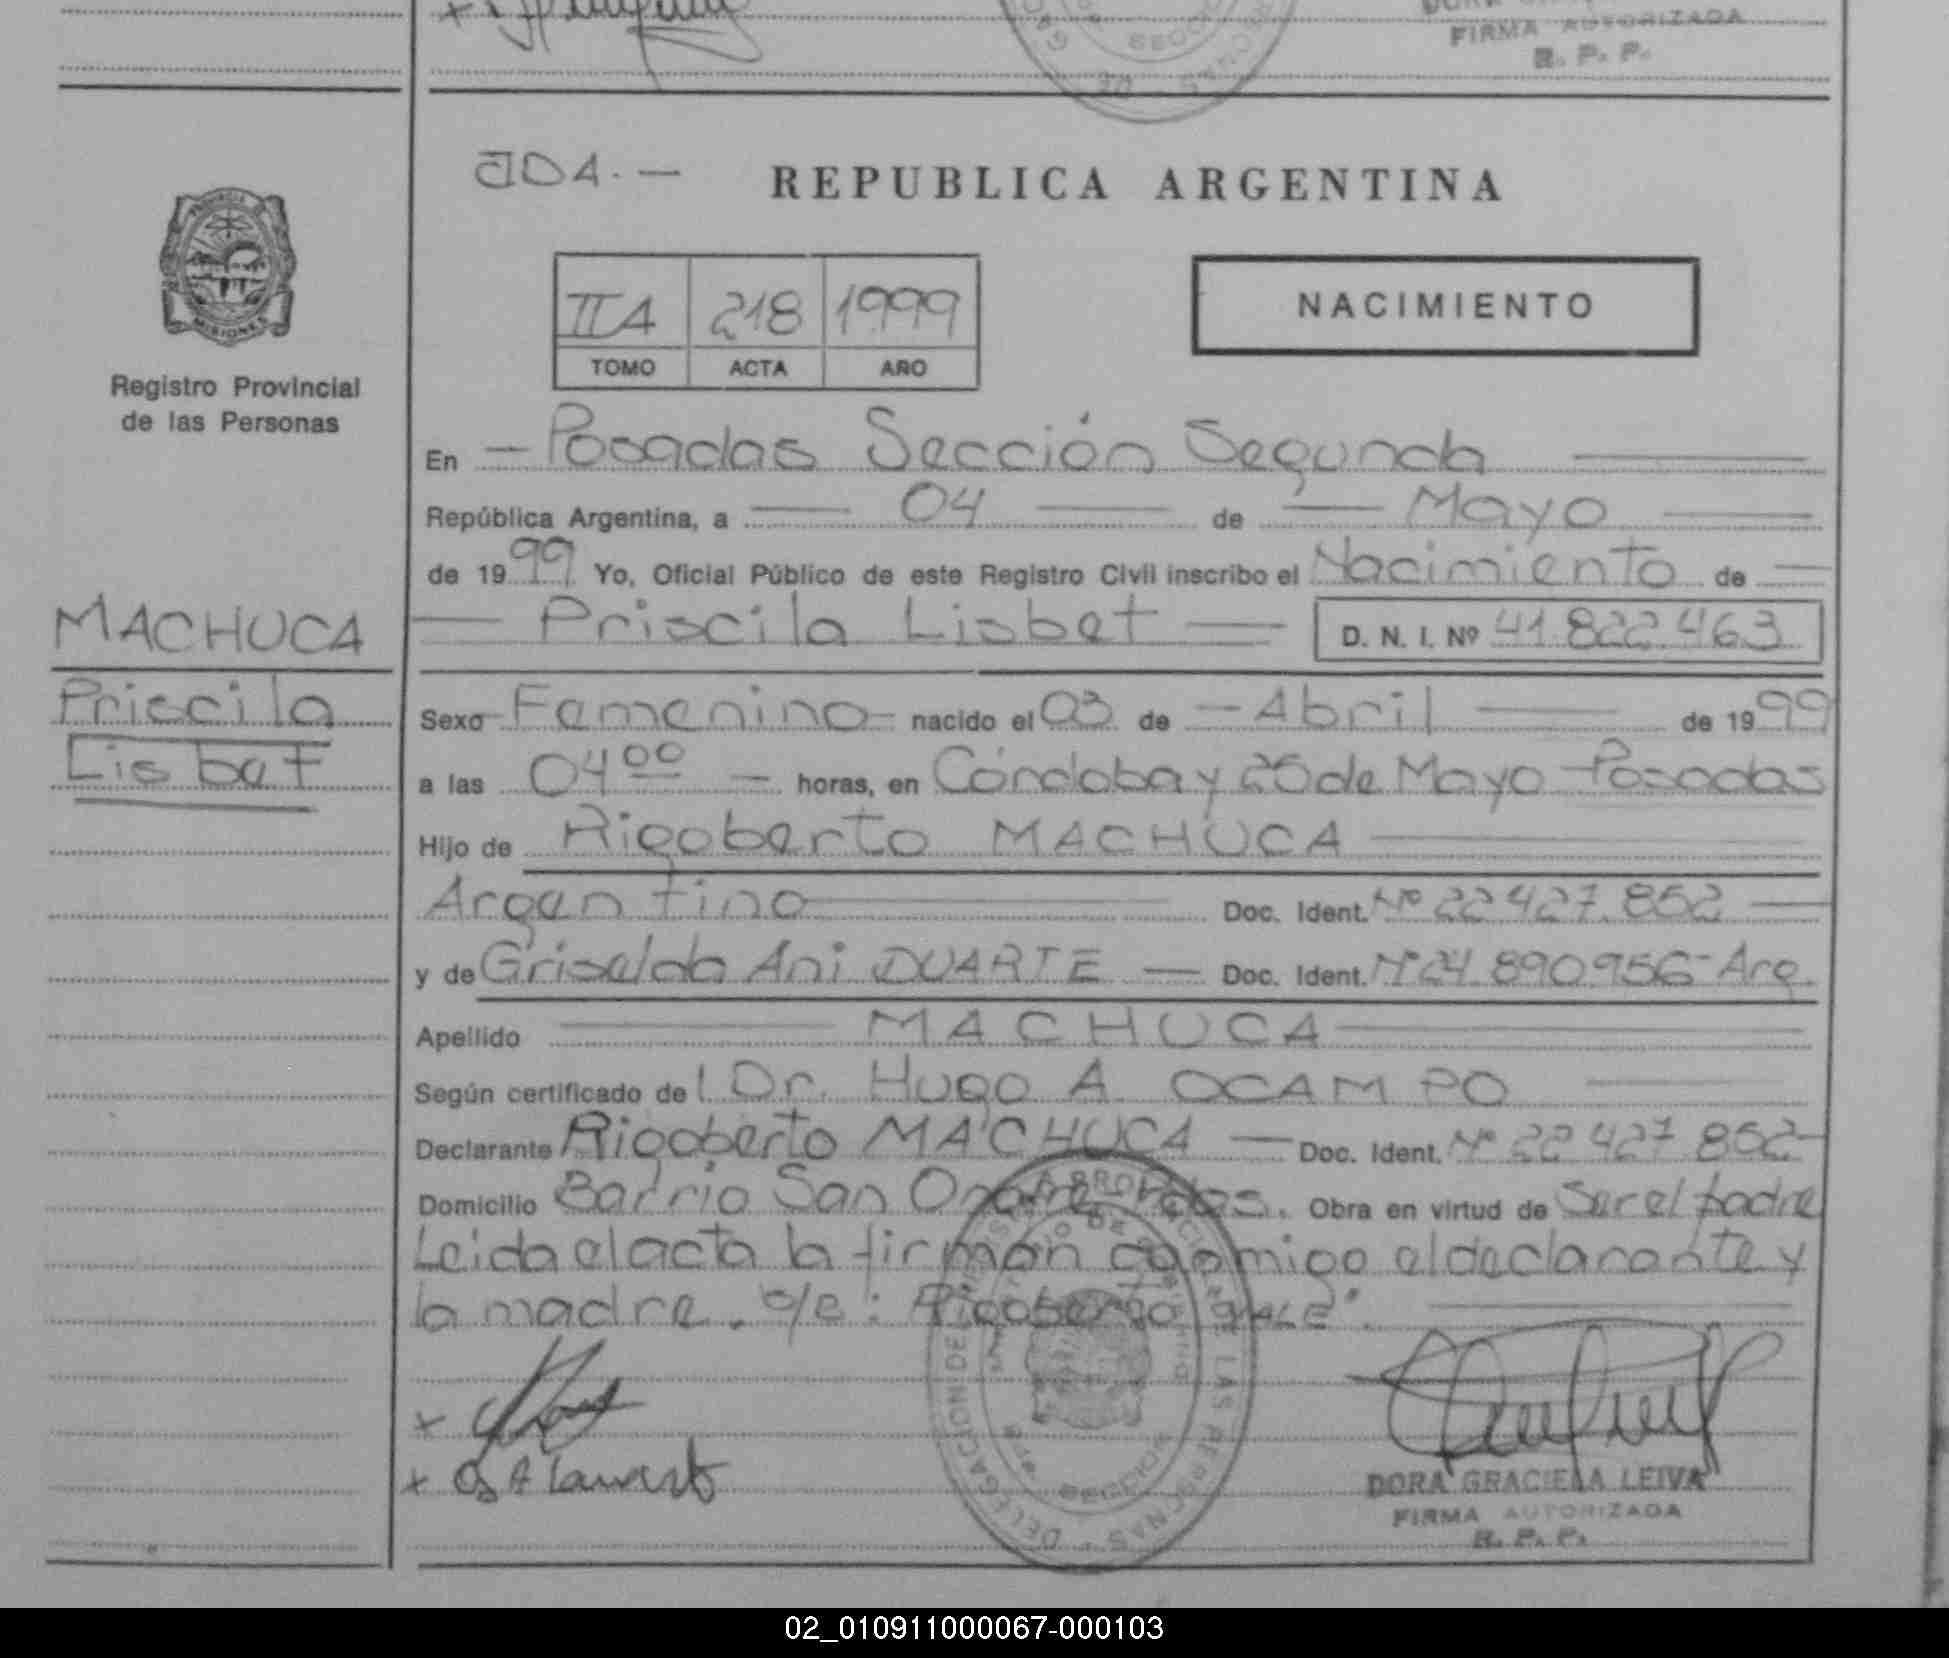 DORA
FIRMA AUTORIZADA
R. P. P.
JDA.-
REPUBLICA ARGENTINA
PROVINCIA DE
MISIONES
Registro Provincial
de las Personas
IIA 218 1999
TOMO ACTA AÑO
NACIMIENTO
En - Posadas Sección Segunda
República Argentina, a 04 de Mayo
de 1999 Yo, Oficial Público de este Registro Civil inscribo el Nacimiento de
Priscila Lisbet D. N. I. Nº 41.822.463
MACHUCA
Priscila
Lisbet
Sexo Femenino nacido el 03 de - Abril de 1999
a las 04 00 - horas, en Córdoba y 25 de Mayo - Posadas
Hijo de Rigoberto MACHUCA
Argentino Doc. Ident. Nº 22.427.852
y de Griselda Ani DUARTE - Doc. Ident. Nº 24.890.956 - Arg.
Apellido MACHUCA
Según certificado de l Dr. Hugo A. OCAMPO
Declarante Rigoberto MACHUCA - Doc. Ident. Nº 22.427.852
Domicilio Barrio San Onofre - Pdas. Obra en virtud de Ser el padre
Leida el acta la firman conmigo el declarante y
la madre. s/e: Rigoberto VALE.
DELEGACION DE LAS PERSONAS
SECCION
DORA GRACIELA LEIVA
FIRMA AUTORIZADA
R. P. P.
02_010911000067-000103